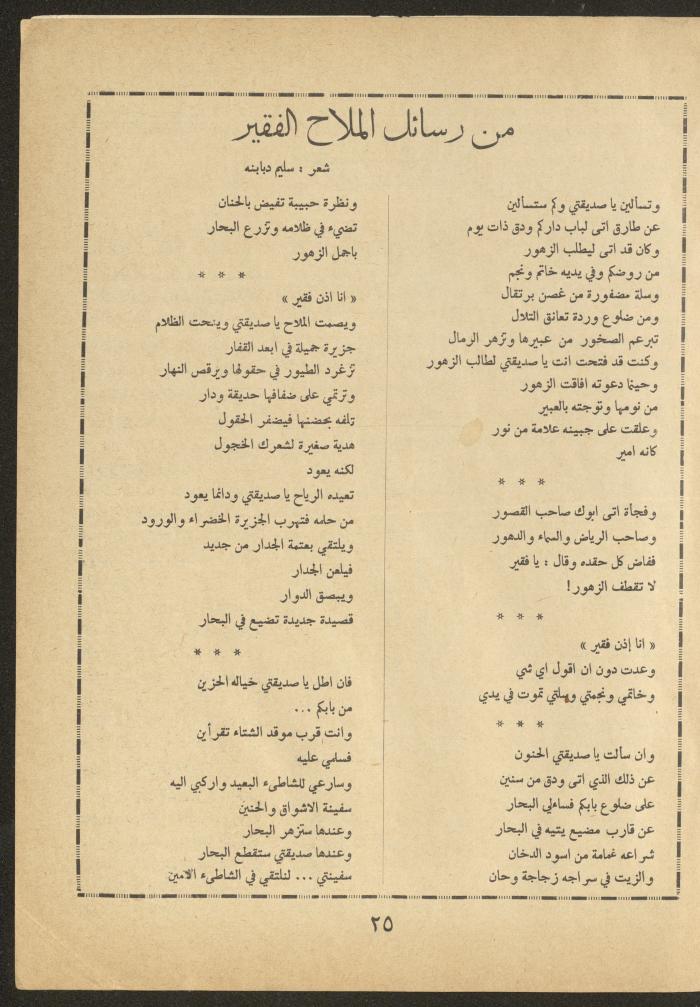 من رسائل الملاح الفقير
شعر : سليم دبابنه
وتسألين يا صديقتي وكم ستسألين
عن طارق اتى لباب داركم ودق ذات يوم
وكان قد اتى ليطلب الزهور
من روضكم وفي يديه خاتم ونجم
وسلة مضفورة من غصن برتقال
ومن ضلوع وردة تعانق التلال
تبرعم الصخور من عبيرها وتزهر الرمال
وكنت قد فتحت انت يا صديقتي لطالب الزهور
وحينما دعوته افاقت الزهور
من نومها وتوجته بالعبير
وعلقت على جبينه علامة من نور
كانه امير
* * *
وفجأة اتى ابوك صاحب القصور
وصاحب الرياض والسماء والدهور
ففاض كل حقده وقال : يا فقير
لا تقطف الزهور !
* * *
« انا إذن فقير »
وعدت دون ان اقول اي شي
وخاتمي ونجمتي وسلتي تموت في يدي
* * *
وان سألت يا صديقتي الحنون
عن ذلك الذي اتى ودق من سنين
على ضلوع بابكم فساءلي البحار
عن قارب مضيع يتيه في البحار
شراعه غمامة من اسود الدخان
والزيت في سراجه زجاجة وحان
ونظرة حبيبة تفيض بالحنان
تضيء في ظلامه وتزرع البحار
باجمل الزهور
* * *
« انا اذن فقير »
ويصمت الملاح يا صديقتي وينحت الظلام
جزيرة جميلة في ابعد القفار
تزغرد الطيور في حقولها ويرقص النهار
وترتمي على ضفافها حديقة ودار
تلفه بحضنها فيضفر الحقول
هدية صغيرة لشعرك الخجول
لكنه يعود
تعيده الرياح يا صديقتي ودائما يعود
من حلمه فتهرب الجزيرة الخضراء والورود
ويلتقي بعتمة الجدار من جديد
فيلعن الجدار
ويبصق الدوار
قصيدة جديدة تضيع في البحار
* * *
فان اطل يا صديقتي خياله الحزين
من بابكم ...
وانت قرب موقد الشتاء تقرأين
فسلمي عليه
وسارعي للشاطىء البعيد واركبي اليه
سفينة الاشواق والحنين
وعندها ستزهر البحار
وعندها صديقتي ستقطع البحار
سفينتي ... لنلتقي في الشاطىء الامين
٢٥